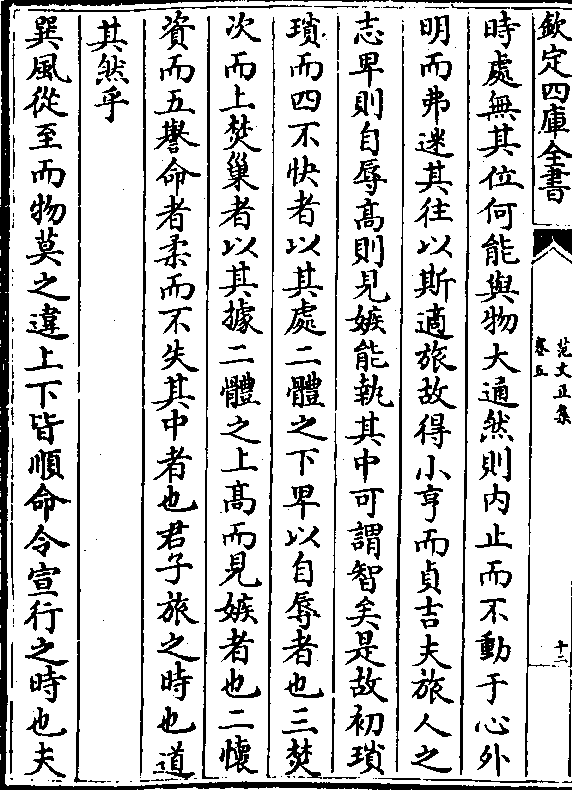 欽定四庫全書
范文正集
卷五
十二
時處無其位何能與物大通然則内止而不動于心外
明而弗迷其往以斯適旅故得小亨而貞吉夫旅人之
志卑則自辱高則見嫉能執其中可謂智矣是故初瑣
瑣而四不快者以其處二體之下卑以自辱者也三焚
次而上焚巢者以其據二體之上髙而見嫉者也二懷
資而五譽命者柔而不失其中者也君子旅之時也道
其然乎
巽風從至而物莫之違上下皆順命令宣行之時也夫